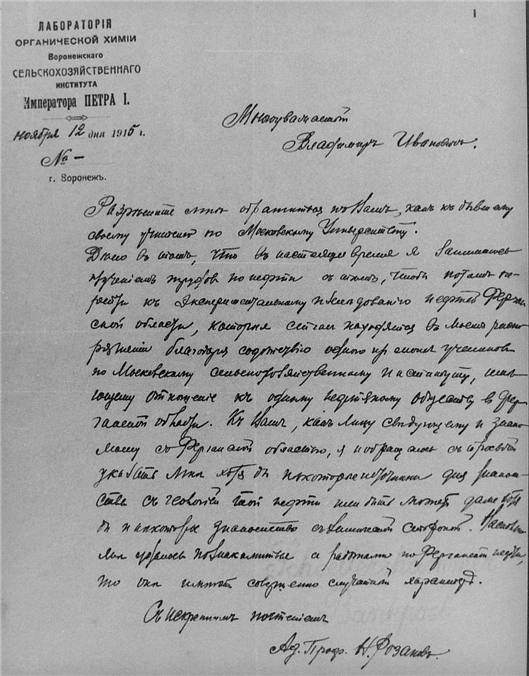 1
ЛАБОРАТОРІЯ
ОРГАНИЧЕСКОЙ ХИМІИ
Воронежскаго
СЕЛЬСКОХОЗЯЙСТВЕННАГО
ИНСТИТУТА
Императора ПЕТРА I.
ноября 12 дня 1915 г.
№ –
г. Воронежъ.
Многоуважаемый
Владимиръ Ивановичъ.
Разрешите мне обратиться къ Вамъ, какъ къ бывшему
своему учителю по Московскому Университету.
Дело въ томъ, что въ настоящее время я занимаюсь
изучениемъ трудовъ по нефти съ темъ, чтобы потомъ пе-
рейти къ экспериментальному изследованию нефтей Ферган-
ской области, которыя сейчас находятся въ моемъ распо-
ряжении благодаря содействию одного изъ моихъ учениковъ
по Московскому сельскохозяйственному институту, имею-
щему отношение къ одному нефтяному обществу в Фер-
ганской области. Къ Вамъ, какъ лицу сведущему и знако-
мому съ Ферганской областью, я и обращаюсь съ просьбой
указать мне хотя бы некоторые источники для знаком-
ства съ геологией этой нефти или быть может даже хотя
бы некоторое знакомство съ химической стороной.
мне удалось познакомиться с работами по Ферганской нефти,
то они имеютъ совершенно случайный характеръ.
Съ искреннимъ почтениемъ
Ад. Проф. Н. Розановъ.